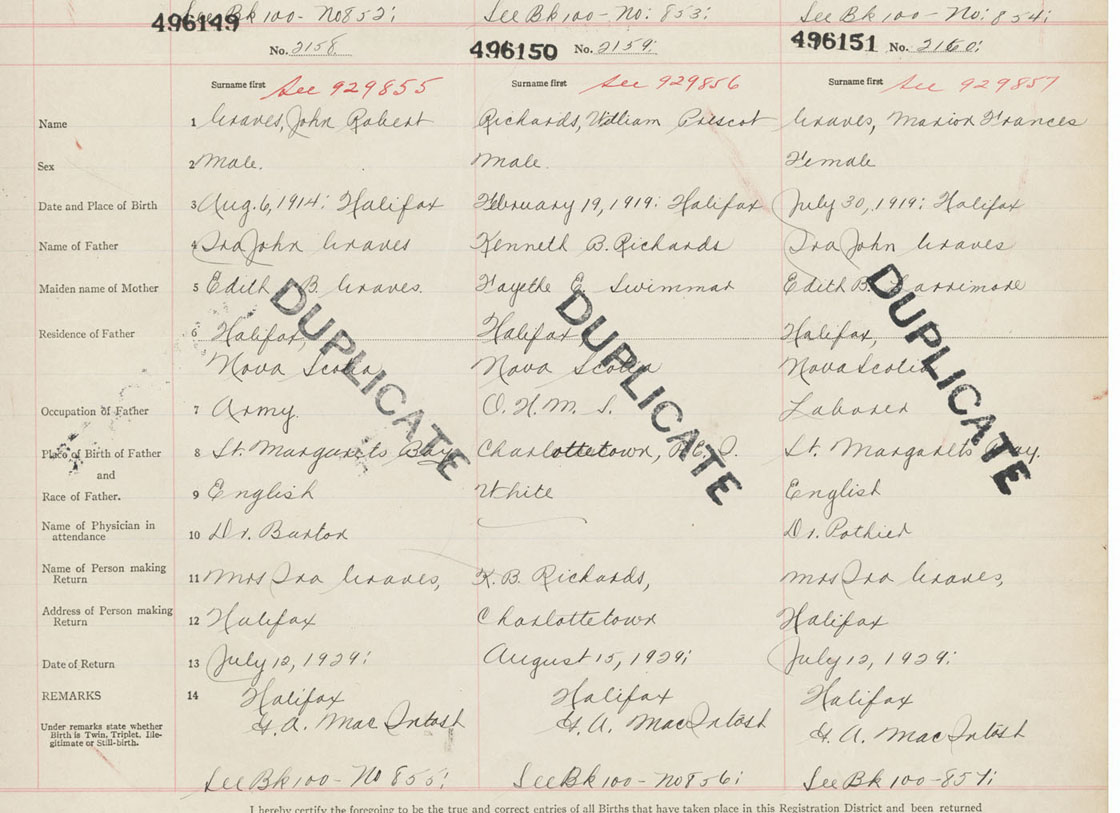 See Bk 100 - No 852; See Bk 100 - No: 853; See Bk 100 - No: 854;
496149 No. 2158 496150 No. 2159; 496151 No. 2160;
Surname first See 929855 Surname first See 929856 Surname first See 929857
Name 1 Graves, John Robert Richards, William Prescot Graves, Marion Frances
Sex 2 Male. Male. Female
Date and Place of Birth 3 Aug. 6, 1914: Halifax February 19, 1919: Halifax July 30, 1919: Halifax
Name of Father 4 Ira John Graves Kenneth B. Richards Ira John Graves
Maiden name of Mother 5 Edith B. Graves. Fayethe E. Swimmar Edith B. Larrimore
Residence of Father 6 Halifax, Halifax, Halifax,
Nova Scotia Nova Scotia Nova Scotia
DUPLICATE DUPLICATE DUPLICATE
Occupation of Father 7 Army. O. H. M. S. Laborer
Place of Birth of Father 8 St. Margarets Bay Charlottetown, P.E.I. St. Margarets Bay.
and
Race of Father. 9 English White English
Name of Physician in
attendance 10 Dr. Burton Dr. Pothier
Name of Person making
Return 11 Mrs Ira Graves, K. B. Richards, Mrs Ira Graves,
Address of Person making
Return 12 Halifax Charlottetown Halifax
Date of Return 13 July 12, 1929; August 15, 1929; July 12, 1929;
REMARKS 14 Halifax Halifax Halifax
H. A. MacIntosh H. A. MacIntosh H. A. MacIntosh
Under remarks state whether
Birth is Twin, Triplet, Ille-
gitimate or Still-birth.
See Bk 100 - No 855; See Bk 100 - No 856; See Bk 100 - 857;
I hereby certify the foregoing to be the true and correct entries of all Births that have taken place in this Registration District and been returned